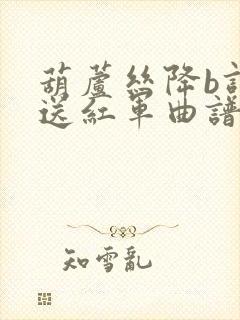 葫蘆絲降b調
送紅軍曲譜
知雪亂